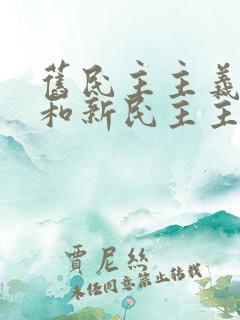 舊民主主義
和新民主主
賈尼絲
未经同意禁止转载